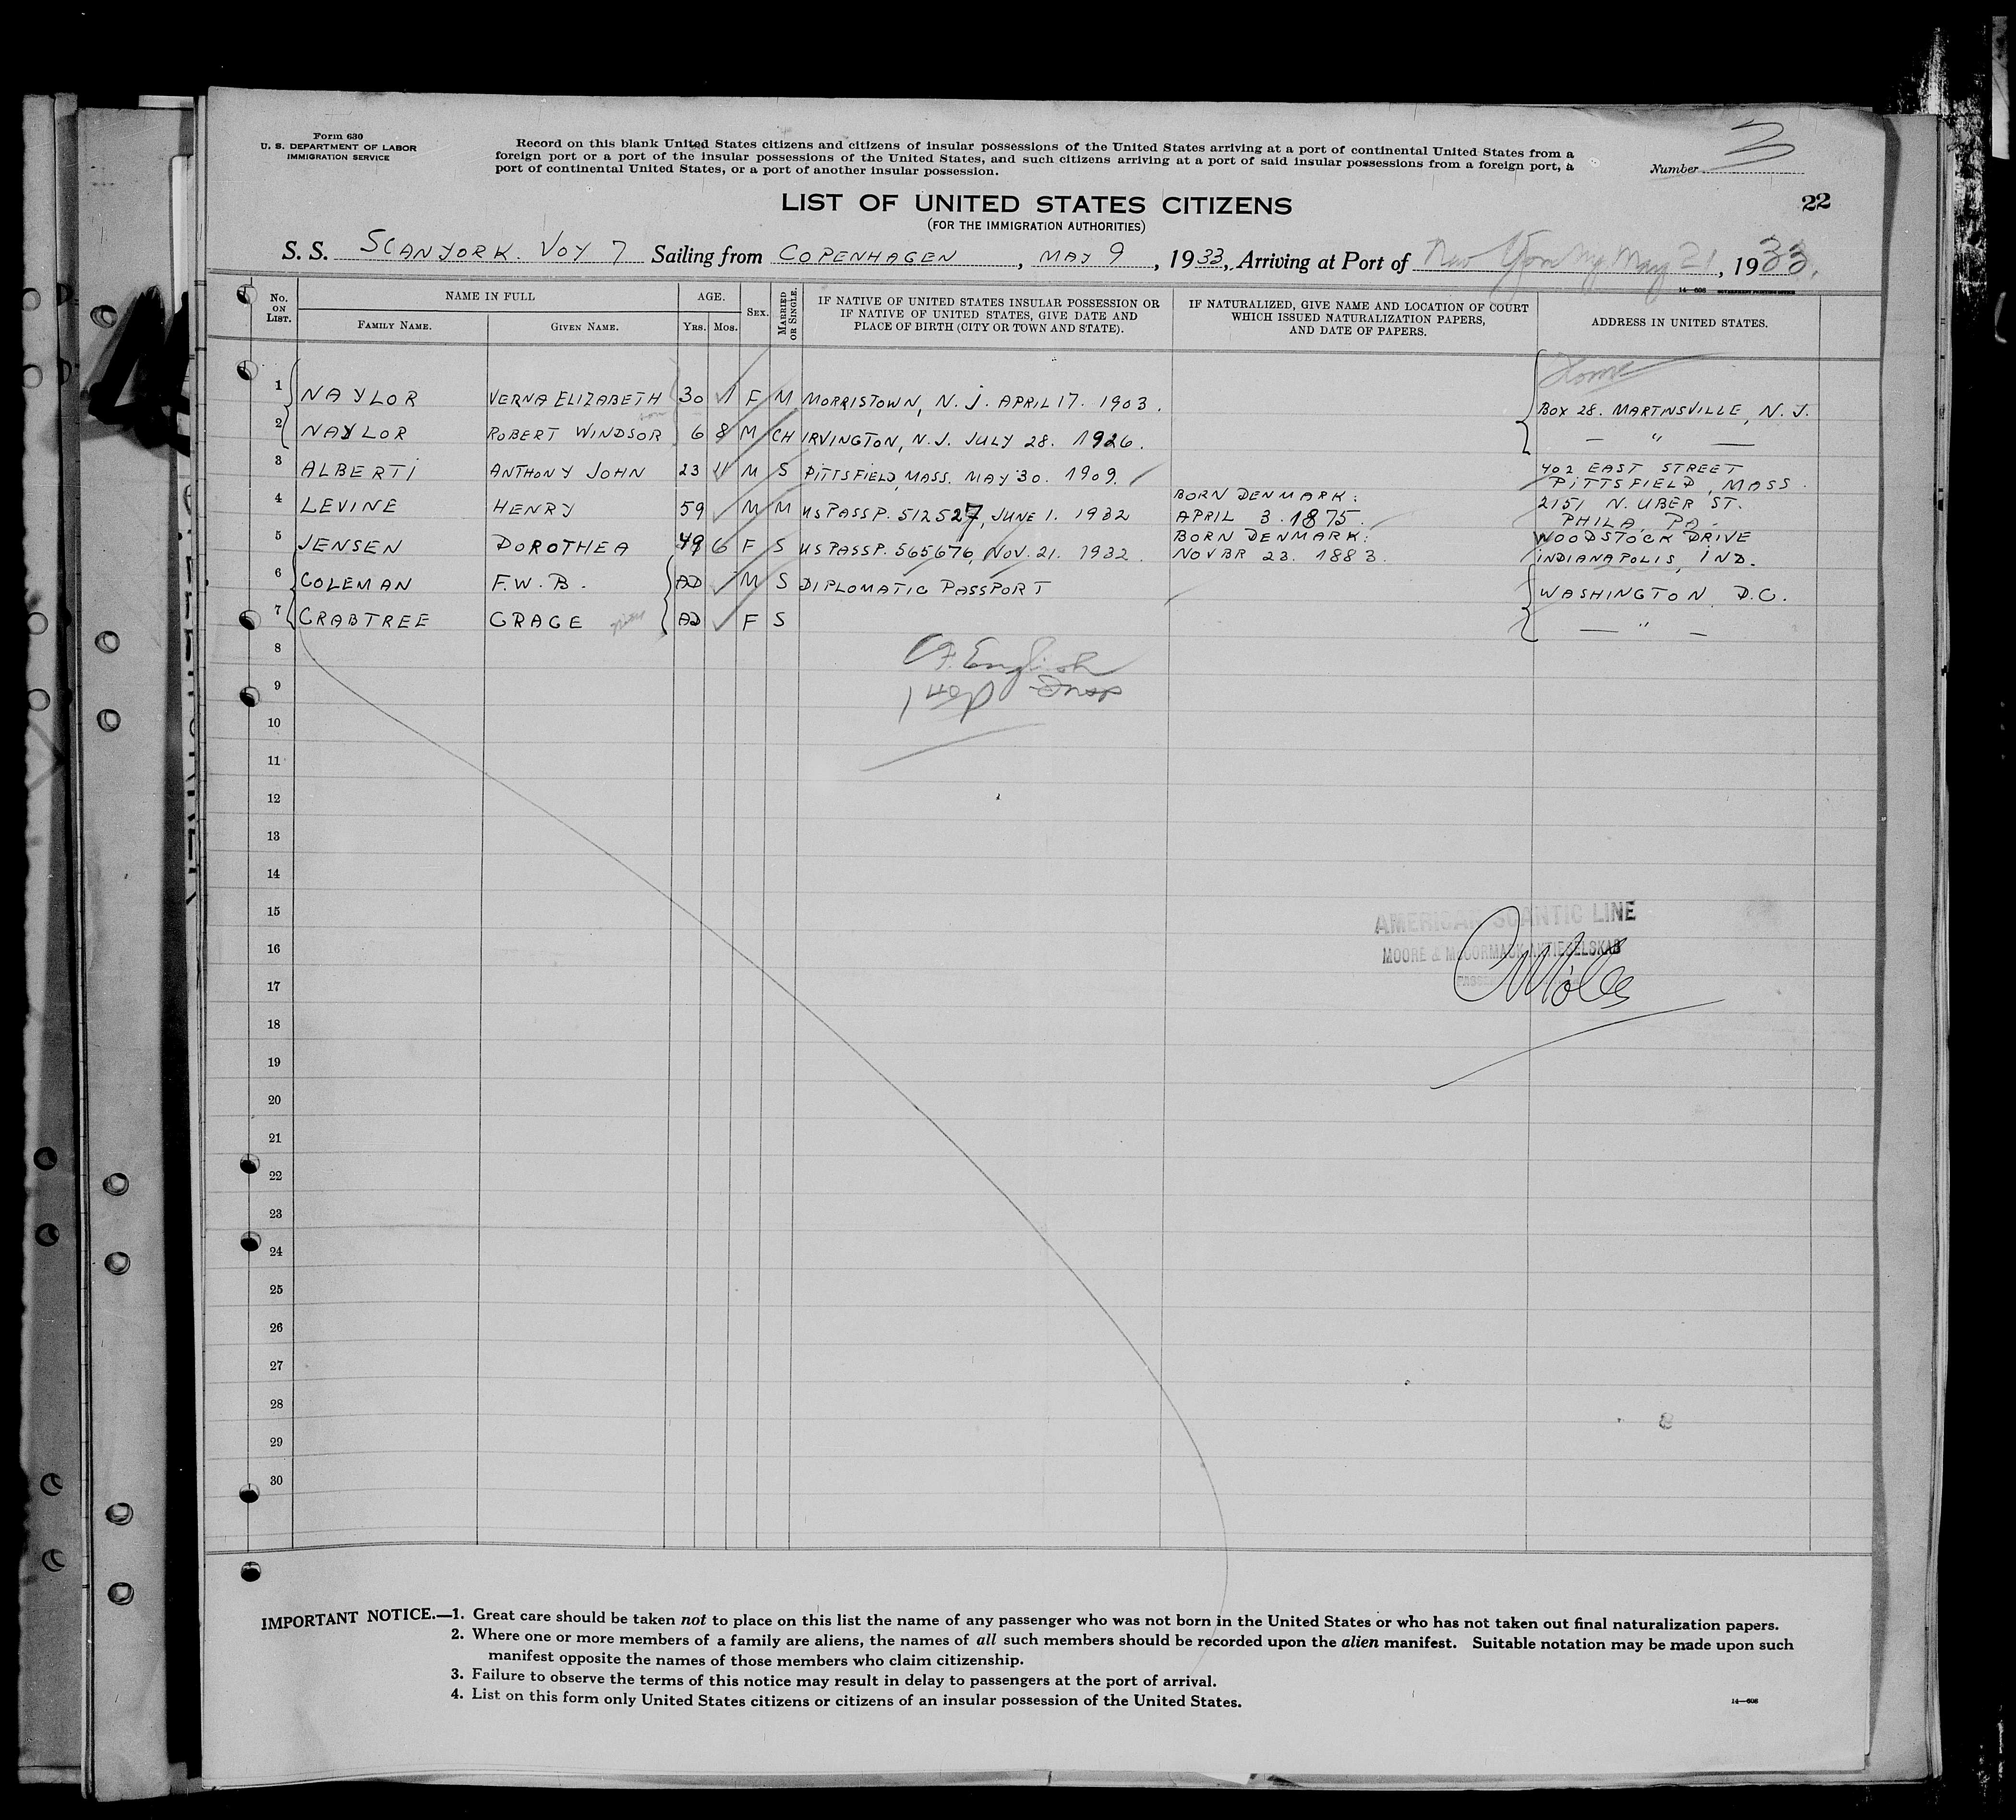 Form 630
U. S. DEPARTMENT OF LABOR
IMMIGRATION SERVICE
Record on this blank United States citizens and citizens of insular possessions of the United States arriving at a port of continental United States from a
foreign port or a port of the insular possessions of the United States, and such citizens arriving at a port of said insular possessions from a foreign port, a
port of continental United States, or a port of another insular possession.
Number 3
22
LIST OF UNITED STATES CITIZENS
(FOR THE IMMIGRATION AUTHORITIES)
S. S. SCANYORK. VOY 7 Sailing from COPENHAGEN, MAY 9, 1933, Arriving at Port of New York Ny May 21, 1933.
14-608 GOVERNMENT PRINTING OFFICE
No. ON LIST.
NAME IN FULL
FAMILY NAME. GIVEN NAME.
AGE.
YRS. MOS.
SEX.
MARRIED OR SINGLE.
IF NATIVE OF UNITED STATES INSULAR POSSESSION OR
IF NATIVE OF UNITED STATES, GIVE DATE AND
PLACE OF BIRTH (CITY OR TOWN AND STATE).
IF NATURALIZED, GIVE NAME AND LOCATION OF COURT
WHICH ISSUED NATURALIZATION PAPERS,
AND DATE OF PAPERS.
ADDRESS IN UNITED STATES.
Home
1 NAYLOR VERNA ELIZABETH 30 1 F M MORRISTOWN, N.J. APRIL 17. 1903. BOX 28. MARTINSVILLE, N.J.
son
2 NAYLOR ROBERT WINDSOR 6 8 M CH IRVINGTON, N.J. JULY 28. 1926. — " —
3 ALBERTI ANTHONY JOHN 23 11 M S PITTSFIELD, MASS. MAY 30. 1909. 402 EAST STREET
PITTSFIELD, MASS.
4 LEVINE HENRY 59 M M US PASSP. 512527, JUNE 1. 1932 BORN DENMARK: 2151 N. UBER ST.
APRIL 3. 1875. PHILA. PA.
5 JENSEN DOROTHEA 49 6 F S US PASSP. 565676, NOV. 21. 1932. BORN DENMARK: WOODSTOCK DRIVE
NOVBR 23. 1883. INDIANAPOLIS, IND.
6 COLEMAN F.W.B. AD M S DIPLOMATIC PASSPORT WASHINGTON D.C.
7 CRABTREE GRACE AD F S — " —
8
English
9
1
Insp
10
11
12
13
14
15
AMERICAN SCANTIC LINE
16
MOORE & McCORMACK AKTIESELSKAB
17
18
19
20
21
22
23
24
25
26
27
28
29
30
IMPORTANT NOTICE.—1. Great care should be taken not to place on this list the name of any passenger who was not born in the United States or who has not taken out final naturalization papers.
2. Where one or more members of a family are aliens, the names of all such members should be recorded upon the alien manifest. Suitable notation may be made upon such
manifest opposite the names of those members who claim citizenship.
3. Failure to observe the terms of this notice may result in delay to passengers at the port of arrival.
4. List on this form only United States citizens or citizens of an insular possession of the United States.
14—608